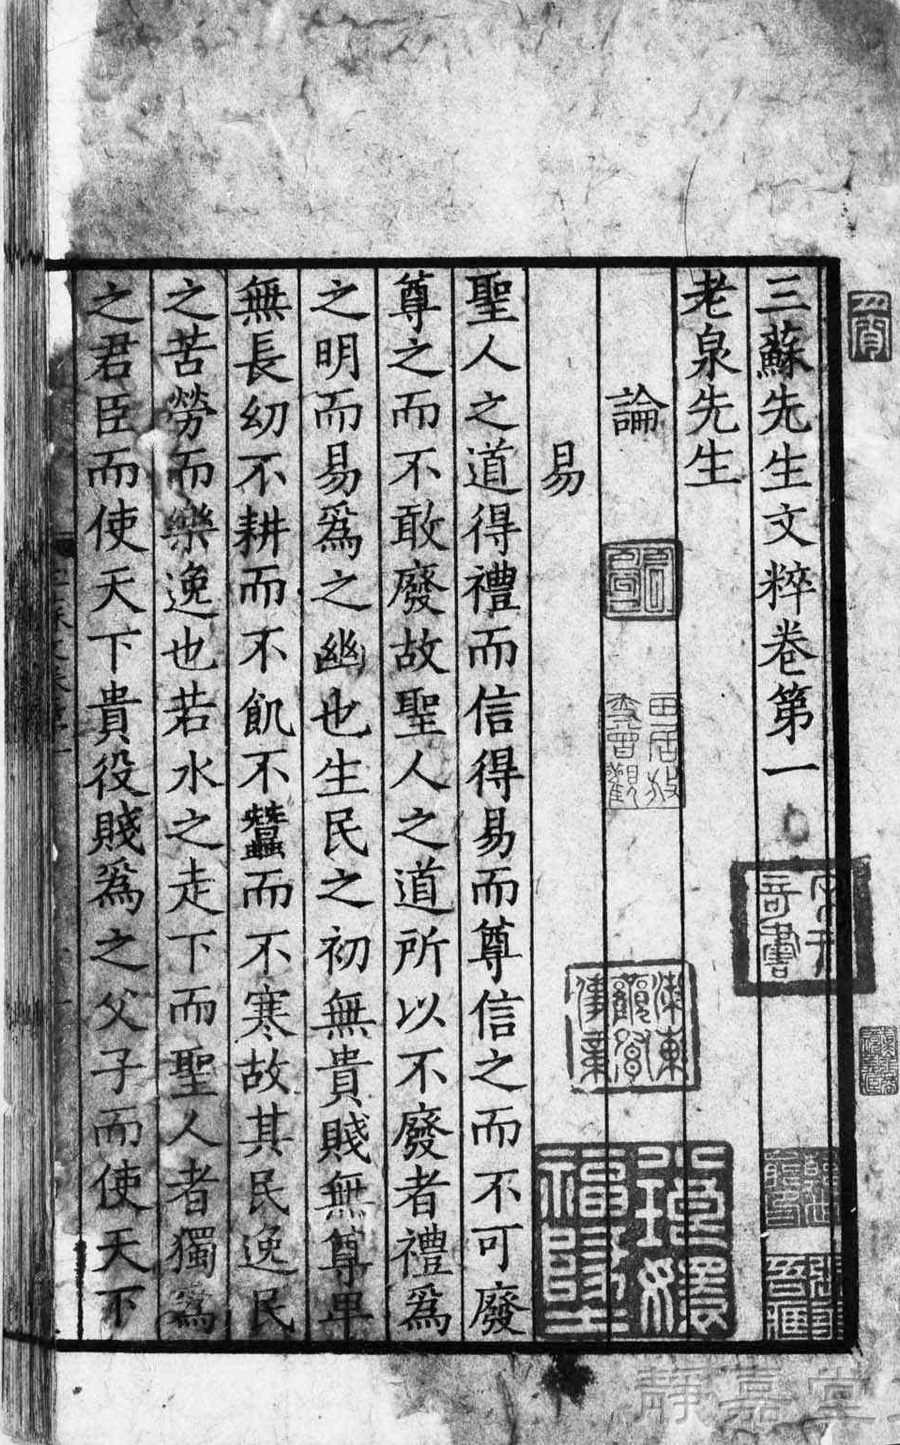 三蘇先生文粹卷第一
老泉先生
論
易
聖人之道得禮而信得易而尊信之而不可廢
尊之而不敢廢故聖人之道所以不廢者禮爲
之明而易爲之幽也生民之初無貴賤無尊卑
無長幼不耕而不飢不蠶而不寒故其民逸民
之苦勞而樂逸也若水之走下而聖人者獨爲
之君臣而使天下貴役賤爲之父子而使天下
瑯嬛
福地
靜嘉堂